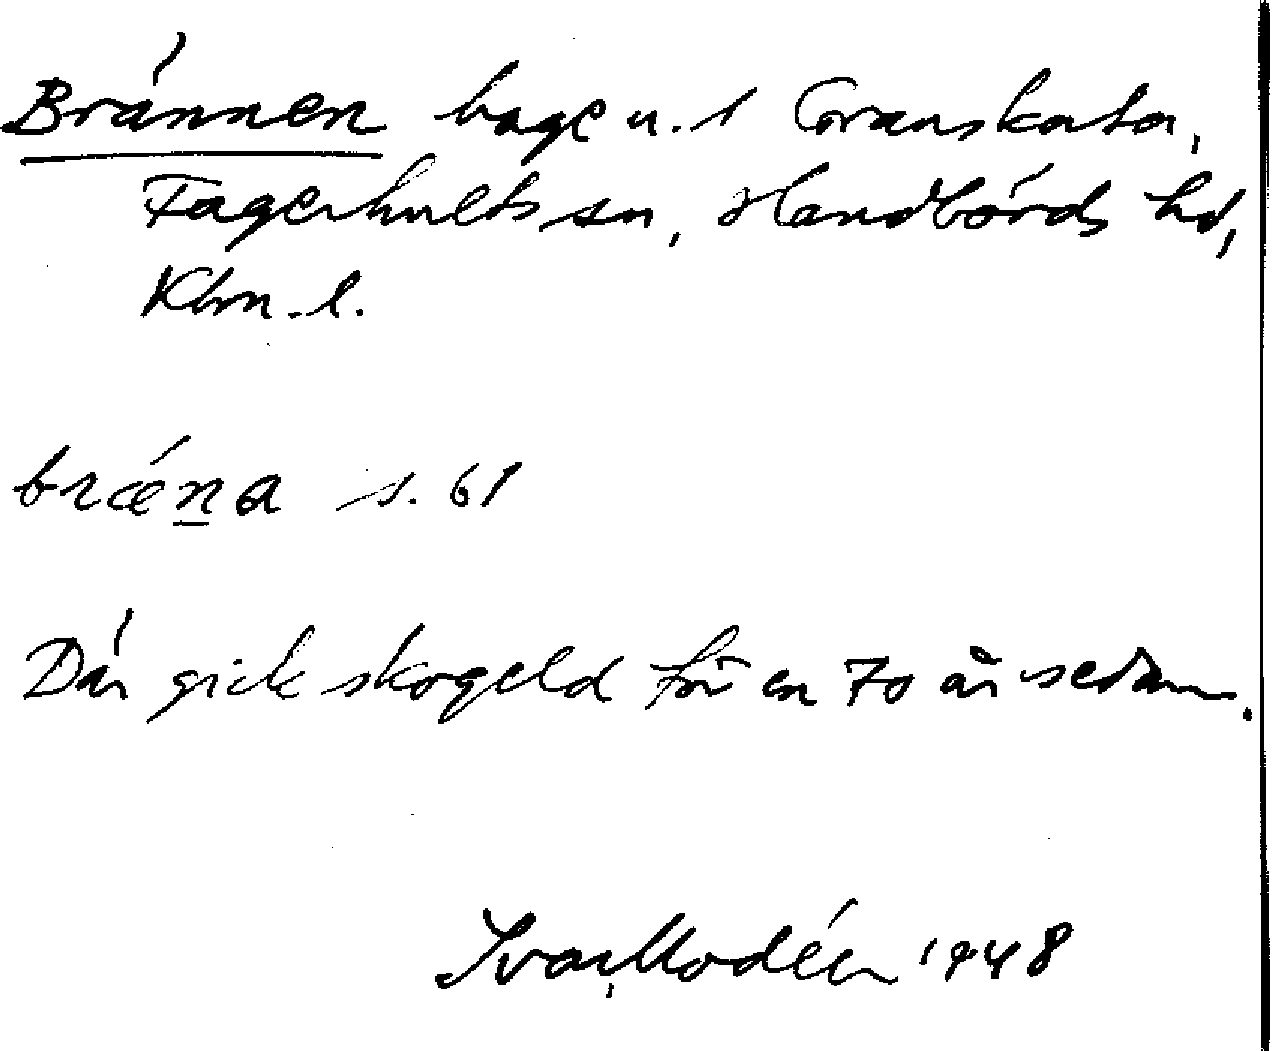 Brännen hage u. l Granskata,
Fagerhults sn, Handbörds hd,
Klm. l.
brǽna s. 61
Där gick skogeld för en 70 år sedan.
Ivar Modéer 1948